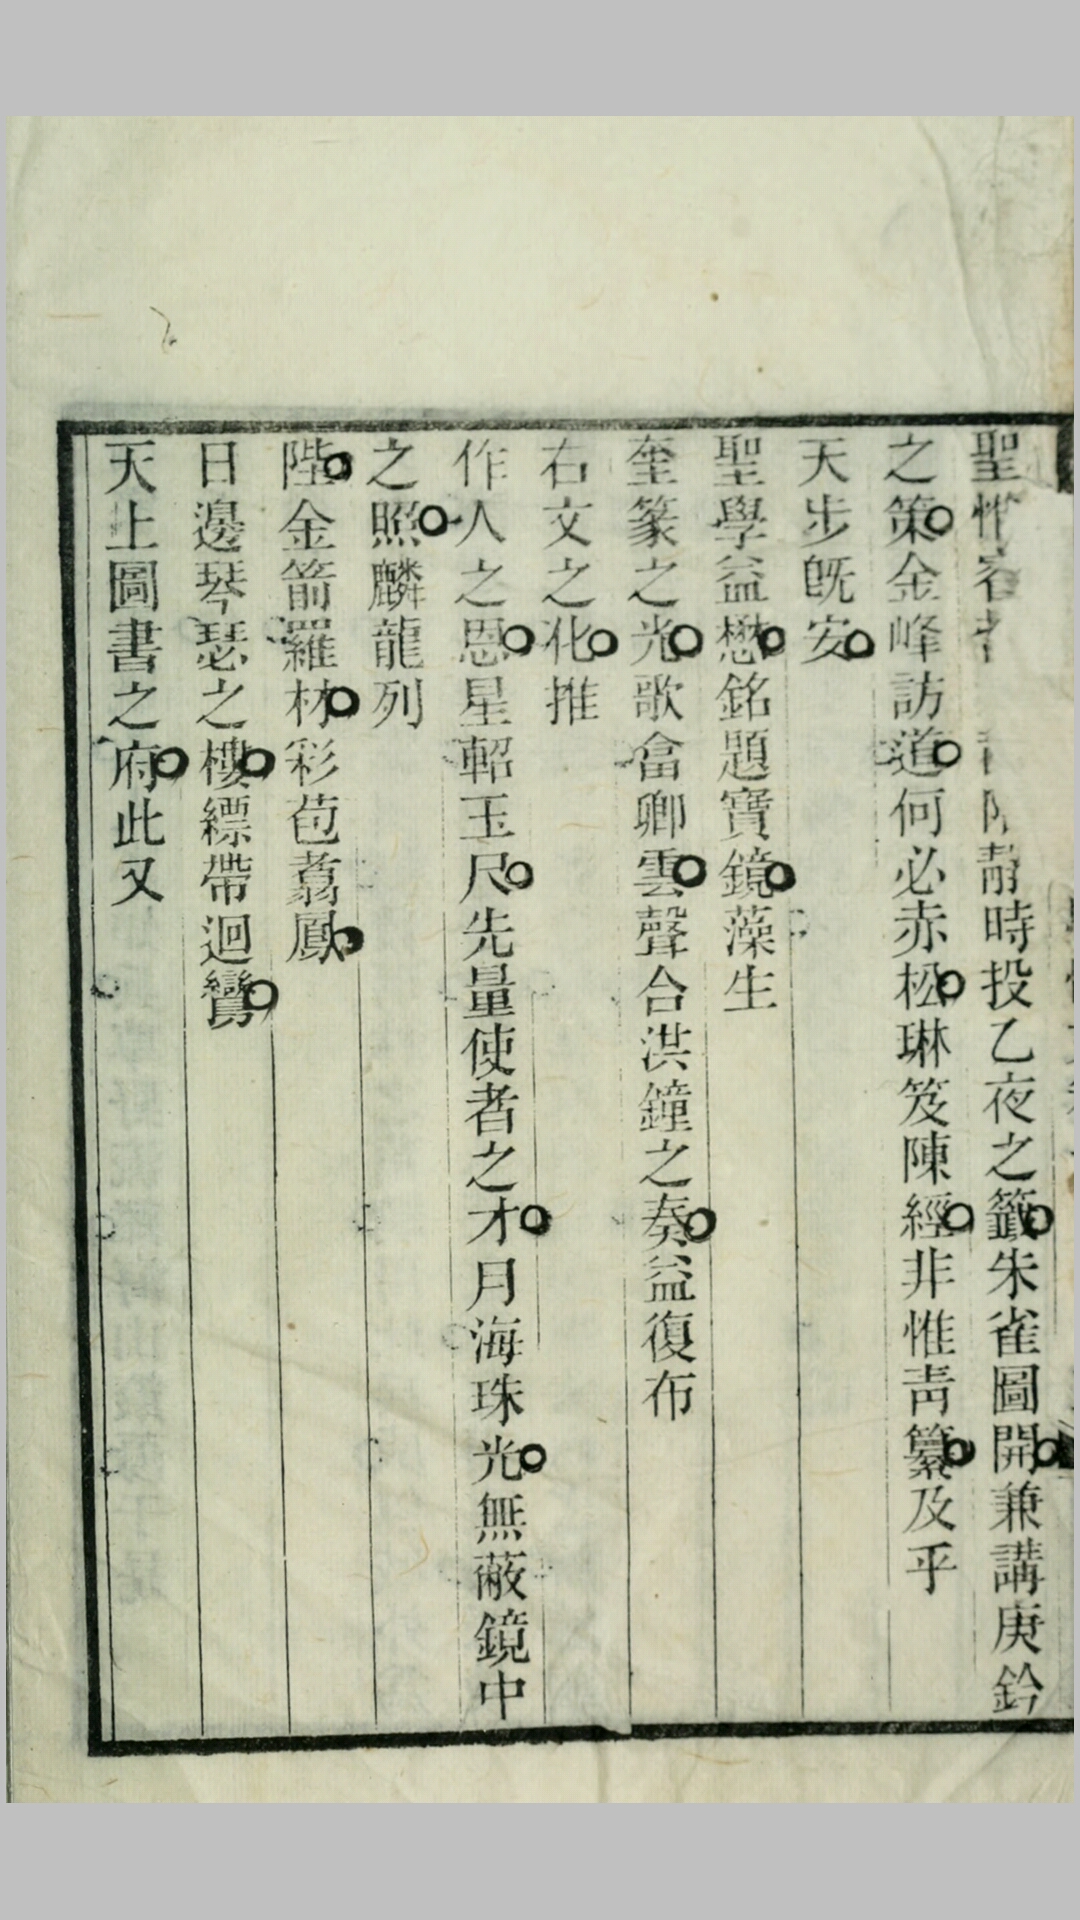 聖惟
靜時投乙夜之籤朱雀圖開兼講庚鈐
之策金峰訪道何必赤松琳笈陳經非惟靑纂及乎
天步旣安
聖學益懋銘題寶鏡藻生
奎篆之光歌畣卿雲聲合洪鐘之奏益復布
右文之化推
作人之恩星軺玉尺先量使者之才月海珠光無蔽鏡中
之照麟龍列
陛金箭羅材彩苞翥鳳
日邊琴瑟之樓縹帶迴鸞
天上圖書之府此又